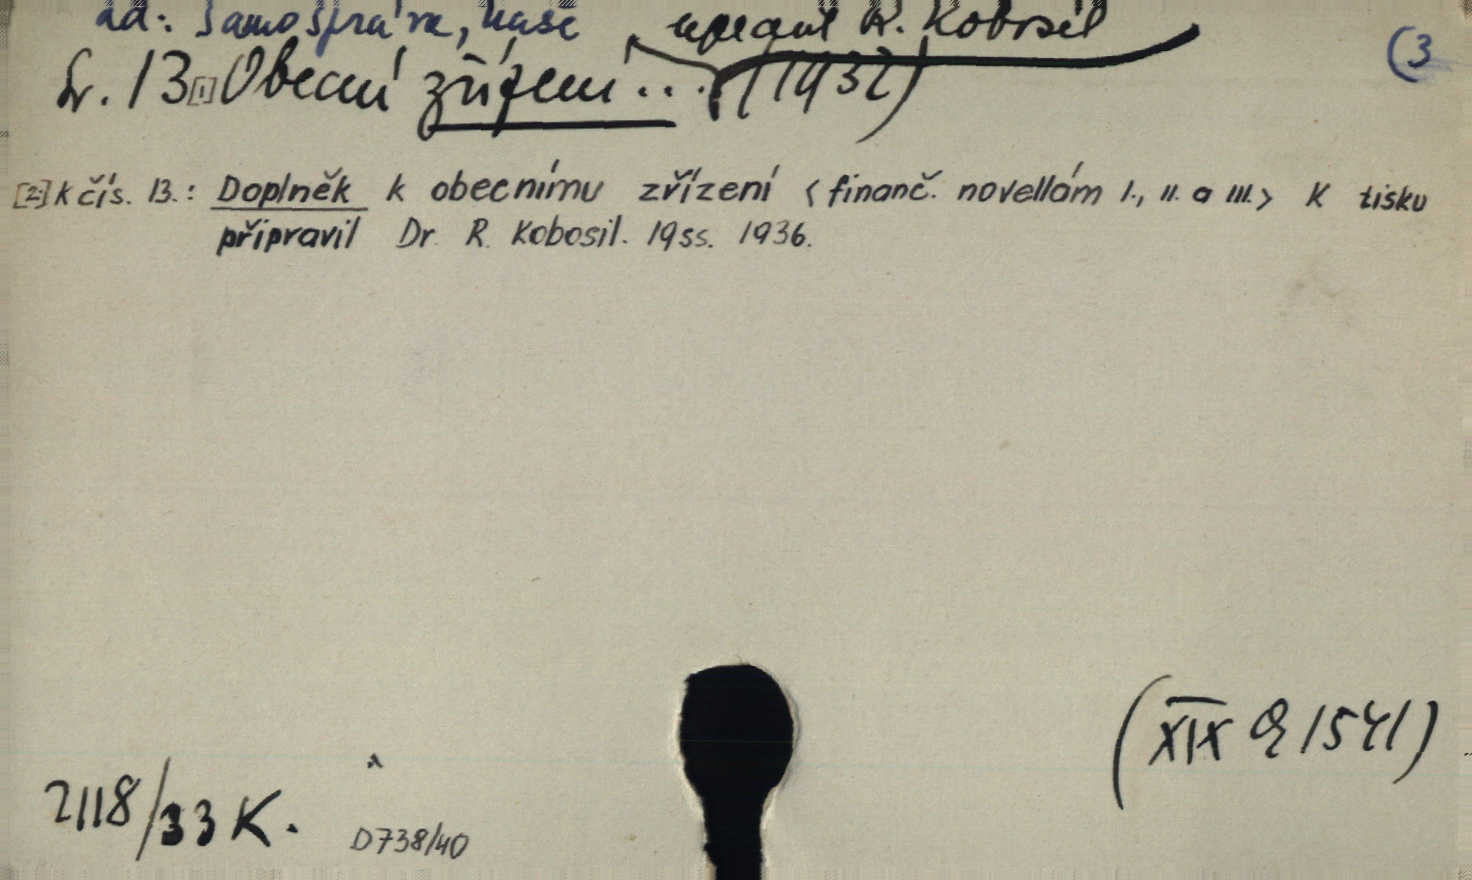 ad: Samospráva, naše
upravil R. Kobosil
(3
Sv. 13[1] Obecní zřízení... (1932)
[2] K čís. 13.: Doplněk k obecnímu zřízení <finanč. novellám I., II. a III.> K tisku
připravil Dr. R. Kobosil. 19ss. 1936.
(XIX Q 1541)
2118/33 K.
D738/40